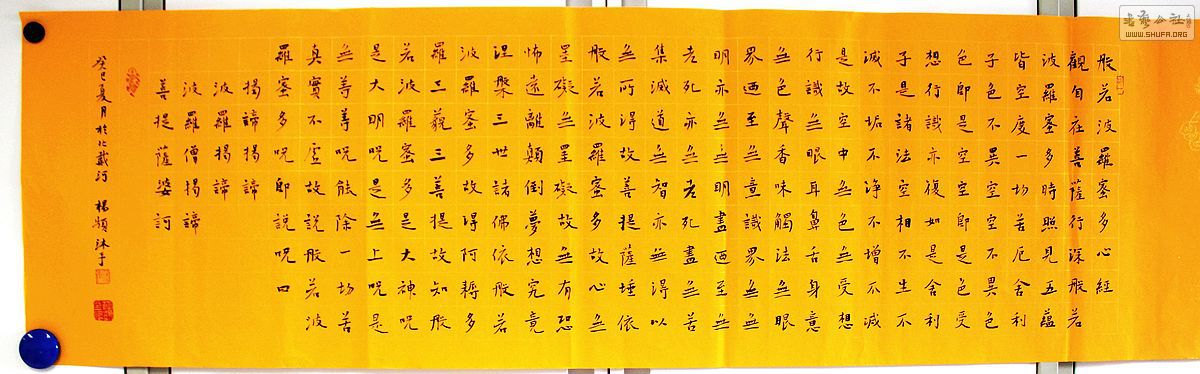 般若波羅蜜多心經
觀自在菩薩行深般若
波羅蜜多時照見五蘊
皆空度一切苦厄舍利
子色不異空空不異色
色即是空空即是色受
想行識亦復如是舍利
子是諸法空相不生不
滅不垢不淨不增不減
是故空中無色無受想
行識無眼耳鼻舌身意
無色聲香味觸法無眼
界迺至無意識界無無
明亦無無明盡迺至無
老死亦無老死盡無苦
集滅道無智亦無得以
無所得故菩提薩埵依
般若波羅蜜多故心無
罣礙無罣礙故無有恐
怖遠離顛倒夢想究竟
涅槃三世諸佛依般若
波羅蜜多故得阿耨多
羅三藐三菩提故知般
若波羅蜜多是大神呪
是大明呪是無上呪是
無等等呪能除一切苦
真實不虛故說般若波
羅蜜多呪即說呪曰
揭諦揭諦
波羅揭諦
波羅僧揭諦
菩提薩婆訶
癸巳夏月於北戴河 楊穎沐手
WWW.SHUFA.ORG